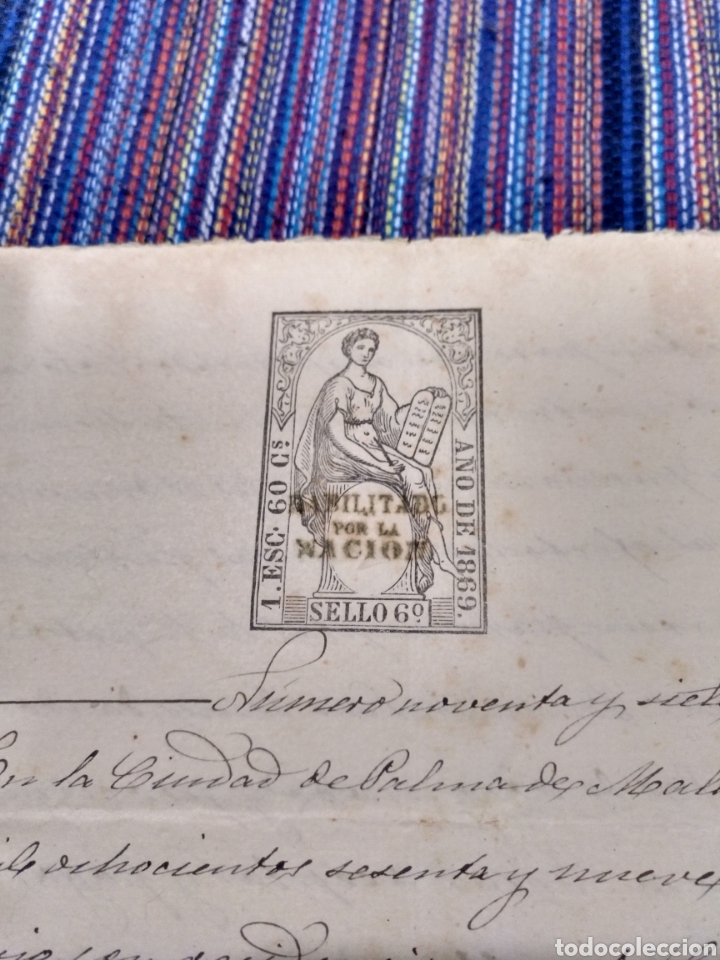 1. ESC. 60 Cs.
AÑO DE 1869.
HABILITADO
POR LA
NACION
SELLO 6º
Número noventa y siete
En la Ciudad de Palma de Mall
ochocientos sesenta y nueve
todocoleccion